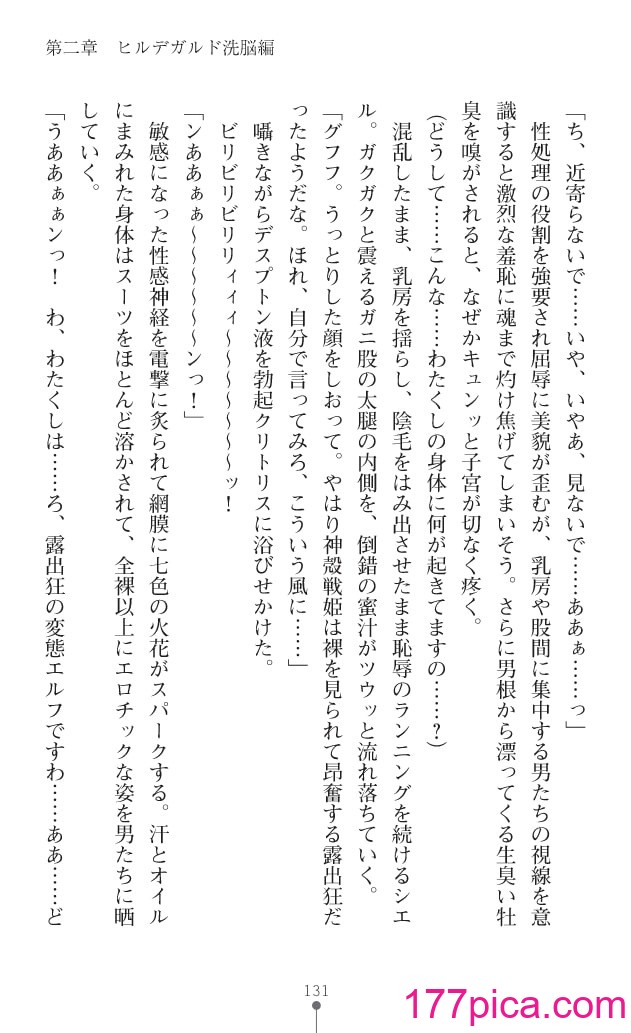 第二章　ヒルデガルド洗脳編
「ち、近寄らないで……いや、いやあ、見ないで……ああぁ……っ」
　性処理の役割を強要され屈辱に美貌が歪むが、乳房や股間に集中する男たちの視線を意
識すると激烈な羞恥に魂まで灼け焦げてしまいそう。さらに男根から漂ってくる生臭い牡
臭を嗅がされると、なぜかキュンッと子宮が切なく疼く。
（どうして……こんな……わたくしの身体に何が起きてますの……？）
　混乱したまま、乳房を揺らし、陰毛をはみ出させたまま恥辱のランニングを続けるシエ
ル。ガクガクと震えるガニ股の太腿の内側を、倒錯の蜜汁がツウッと流れ落ちていく。
「グフフ。うっとりした顔をしおって。やはり神殻戦姫は裸を見られて昂奮する露出狂だ
ったようだな。ほれ、自分で言ってみろ、こういう風に……」
　囁きながらデスプトン液を勃起クリトリスに浴びせかけた。
　ビリビリビリリィィィ～～～～～～～ッ！
「ンああぁぁ～～～～～～ンっ！」
　敏感になった性感神経を電撃に炙られて網膜に七色の火花がスパークする。汗とオイル
にまみれた身体はスーツをほとんど溶かされて、全裸以上にエロチックな姿を男たちに晒
していく。
「うああぁぁンっ！　わ、わたくしは……ろ、露出狂の変態エルフですわ……ああ……ど
131
177pica.com